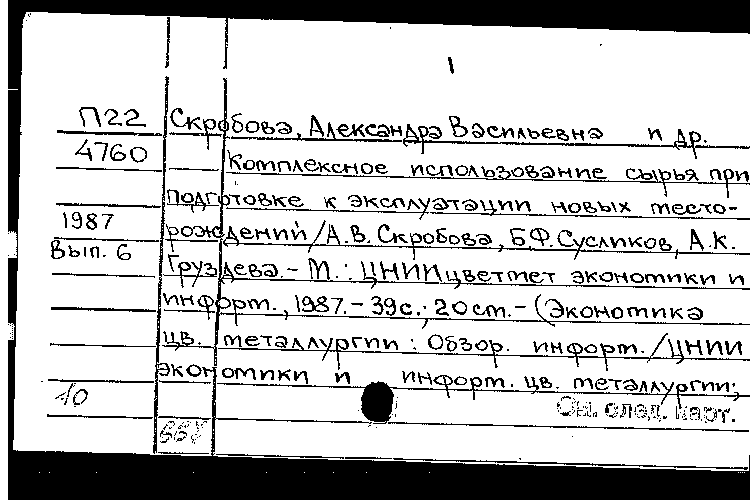 1
П22 Скробова, Александра Васильевна и др.
4760 Комплексное использование сырья при
подготовке к эксплуатации новых место-
1987 рождений / А.В. Скробова, Б.Ф. Сусликов, А.К.
Вып. 6 Груздева. – М.: ЦНИИцветмет экономики и
информ., 1987. – 39с.; 20см. – (Экономика
цв. металлургии: Обзор. информ. / ЦНИИ
экономики и информ. цв. металлургии;
10 См. след. карт.